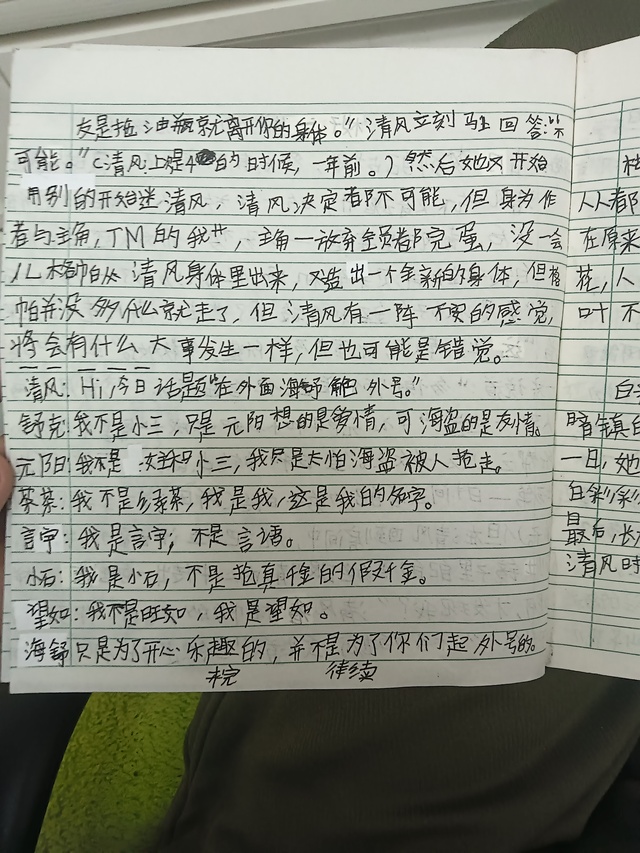 友是拖油瓶就离开你的身体。”清风立刻马上回答：“不
可能。”（清风上是4的时候，一年前。）然后她又开始
用别的开始迷清风，清风决定都不可能，但身为作
者与主角，TM的我艹，主角一放弃全员都完蛋，没一会
儿格帕从清风身体里出来，又造出一个全新的身体，但格
帕并没多什么就走了，但清风有一阵不安的感觉，
将会有什么大事发生一样，但也可能是错觉。
清风：Hi，今日话题“在外面海舒解外号。”
舒克：我不是小三，只是元阳想的是爱情，可海盗的是友情。
元阳：我不是小三，我只是太怕海盗被人抢走。
茶茶：我不是绿茶，我是我，这是我的名字。
言宇：我是言宇，不是言语。
小石：我是小石，不是抢真千金的假千金。
望如：我不是旺如，我是望如。
海舒只是为了开心乐趣的，并不是为了你们起外号的。
完 待续
人人都
在原来
花，人
叶不
白
暗镇
一日，她
白
最后，
清风时